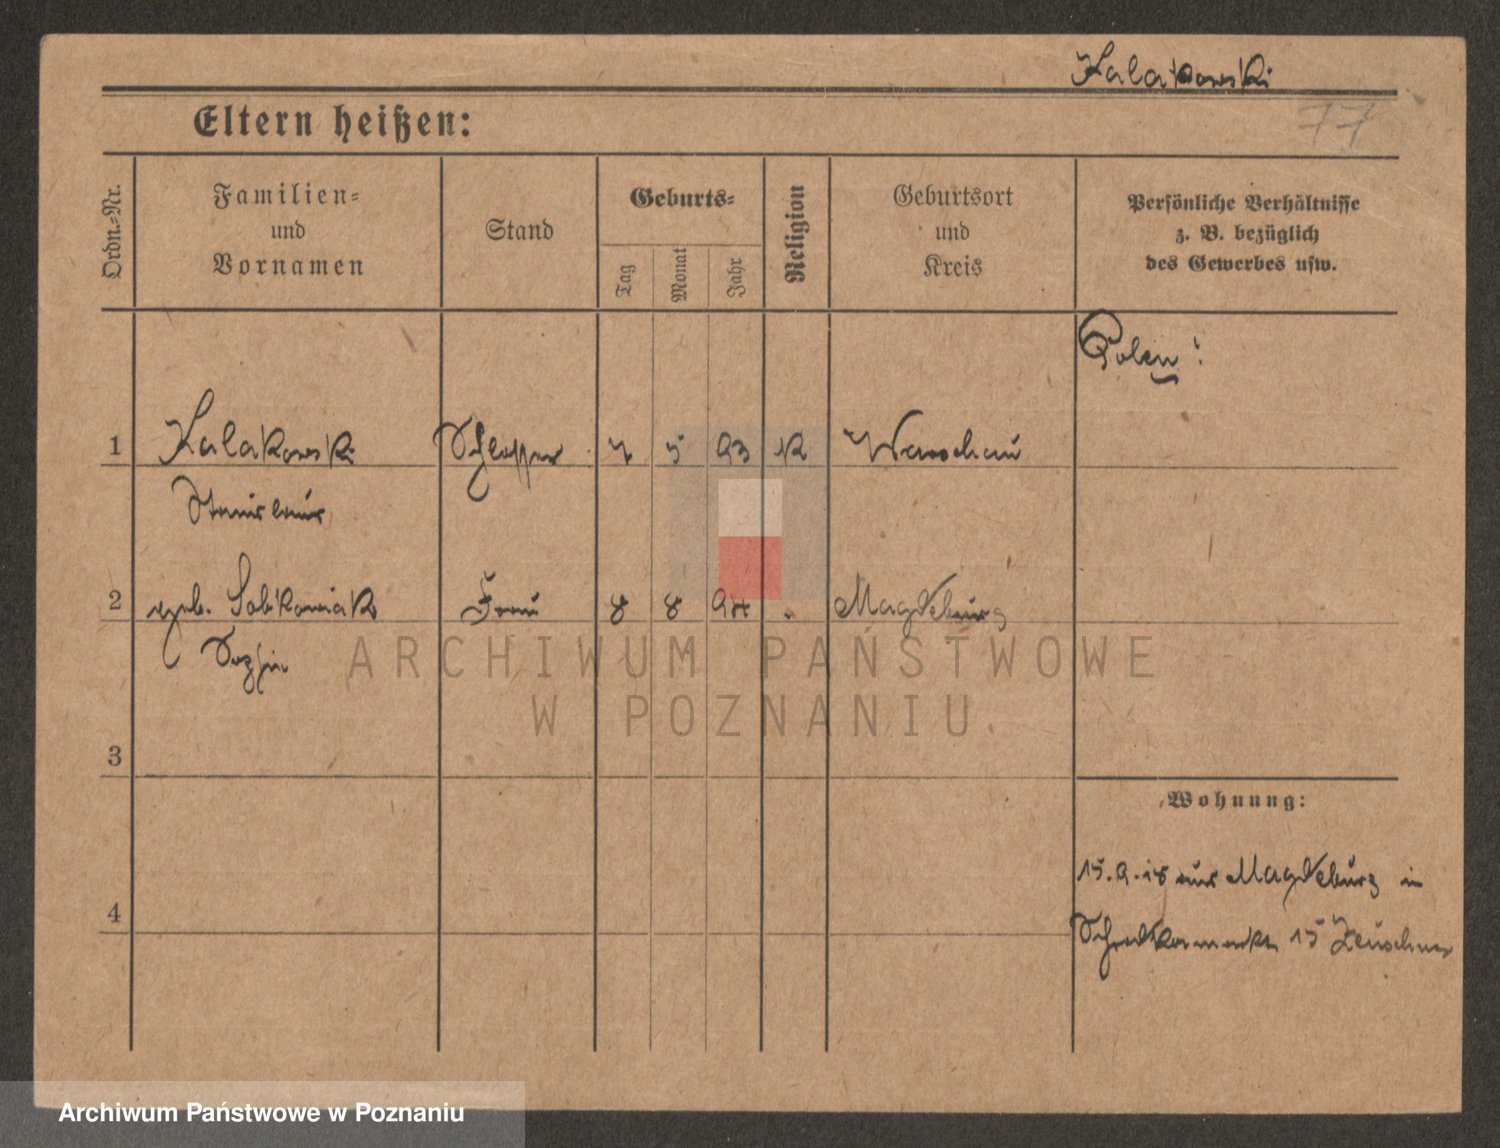 Kalakowski
77
Eltern heißen:
Ordn.-Nr.
Familien-
und
Vornamen
Stand
Geburts-
Tag
Monat
Jahr
Religion
Geburtsort
und
Kreis
Persönliche Verhältnisse
z. B. bezüglich
des Gewerbes usw.
Polen!
1 Kalakowski Schlosser 7 5 93 K Warschau
Stanislaus
2 geb. Sobkowiak Frau 8 8 94 . Magdeburg
Sophie
ARCHIWUM PAŃSTWOWE
W POZNANIU
3
Wohnung:
15.9.18 aus Magdeburg in
4
15 Zeuschner
Archiwum Państwowe w Poznaniu